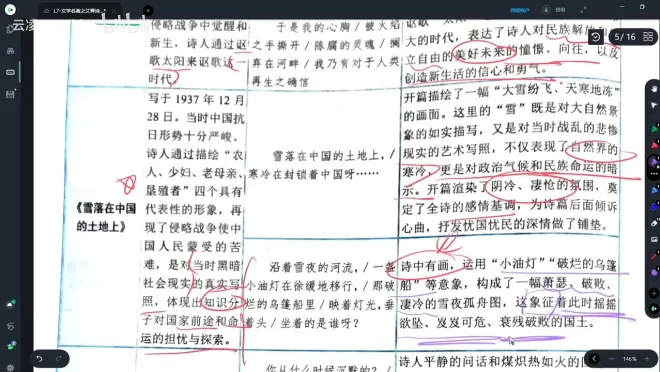 L7-文学名著之艾青诗
5 / 16
侵略战争中觉醒和
新生，诗人通过讴
歌太阳来讴歌这一
时代
于是我的心胸/被火焰
之手撕开/陈腐的灵魂/搁
弃在河畔/我乃有对于人类
再生之确信
大的时代，表达了诗人对民族解放
立自由的美好未来的憧憬、向往，以及
创造新生活的信心和勇气。
《雪落在中国
的土地上》
写于 1937 年 12 月
28 日。当时中国抗
日形势十分严峻。
诗人通过描绘“农
人、少妇、老母亲、
垦殖者”四个具有
代表性的形象，再
现了侵略战争使中
国人民蒙受的苦
难，是对当时黑暗
社会现实的真实写
照，体现出知识分
子对国家前途和命
运的担忧与探索。
雪落在中国的土地上，/
寒冷在封锁着中国呀……
开篇描绘了一幅“大雪纷飞、天寒地冻”
的画面。这里的“雪”既是对大自然景
象的如实描写，又是对当时战乱的悲惨
现实的艺术写照，不仅表现了自然界的
寒冷，更是对政治气候和民族命运的暗
示。开篇渲染了阴冷、凄怆的氛围，奠
定了全诗的感情基调，为诗篇后面倾诉
心曲，抒发忧国忧民的深情做了铺垫。
沿着雪夜的河流，/一盏
小油灯在徐缓地移行，/那破
烂的乌篷船里/映着灯光，垂
着头/坐着的是谁呀？
诗中有画，运用“小油灯”“破烂的乌篷
船”等意象，构成了一幅萧瑟、破败、
凄冷的雪夜孤舟图，这象征着此时摇摇
欲坠、岌岌可危、衰残破败的国土。
你从什么时候沉默的？/
诗人平静的问话和煤炽热如火的回
146%